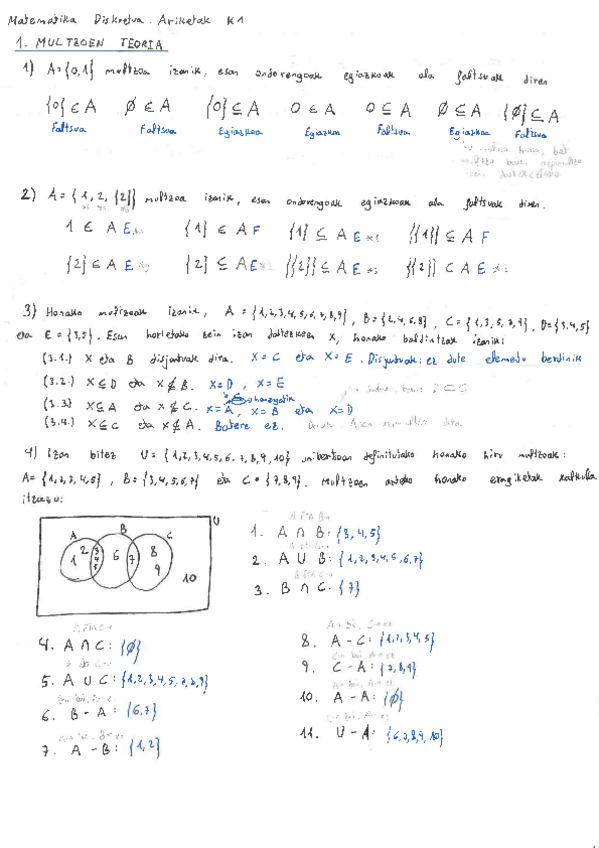 Matematika Diskretua. Ariketak K1
1. MULTZOEN TEORIA
1) A={0,1} multzoa izanik, esan ondorengoak egiazkoak ala faltsuak diren
{0} ∈ A ∅ ∈ A {0} ⊆ A 0 ∈ A 0 ⊆ A ∅ ⊆ A {∅} ⊆ A
Faltsua Faltsua Egiazkoa Egiazkoa Faltsua Egiazkoa Faltsua
2) A={1,2,{2}} multzoa izanik, esan ondorengoak egiazkoak ala faltsuak diren.
1 ∈ A E {1} ∈ A F {1} ⊆ A E {{1}} ⊆ A F
{2} ∈ A E {2} ⊆ A E {{2}} ⊆ A E {{2}} ⊂ A E
3) Honako multzoak izanik, A = {1,2,3,4,5,6,7,8,9}, B={2,4,6,8}, C={1,3,5,7,9}, D={3,4,5}
eta E={3,5}. Esan horietako zein izan daitezkeen X, honako baldintzak izanik:
(3.1.) X eta B disjuntuak dira. X=C eta X=E. Disjuntuak: ez dute elementu berdinik
(3.2.) X ⊆ D eta X ⊄ B. X=D, X=E
(3.3) X ⊆ A eta X ⊄ C. X=A, X=B eta X=D
(3.4.) X ⊆ C eta X ⊄ A. Batere ez.
4) Izan bitez U={1,2,3,4,5,6,7,8,9,10} unibertsoan definitutako honako hiru multzoak:
A={1,2,3,4,5}, B={3,4,5,6,7} eta C={7,8,9}. Multzoen arteko honako eragiketak kalkula
itzazu:
U
A B C
1 2 3 4 5 6 7 8 9 10
1. A ∩ B: {3,4,5}
2. A ∪ B: {1,2,3,4,5,6,7}
3. B ∩ C: {7}
4. A ∩ C: {∅}
5. A ∪ C: {1,2,3,4,5,7,8,9}
6. B - A: {6,7}
7. A - B: {1,2}
8. A - C: {1,2,3,4,5}
9. C - A: {7,8,9}
10. A - A: {∅}
11. U - A: {6,7,8,9,10}